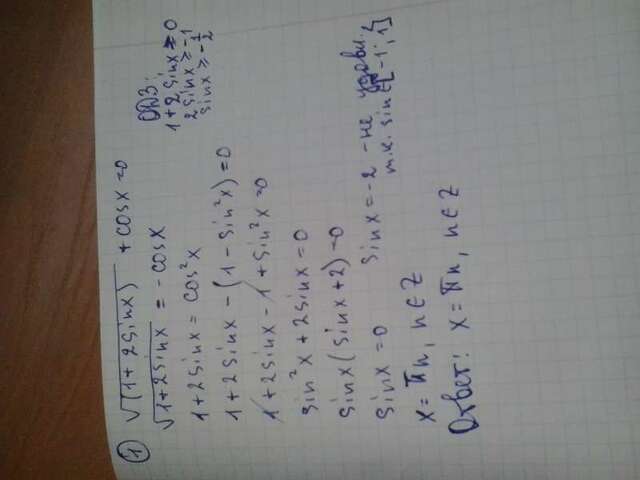 1 √(1+2sinx) + cosx = 0
√1+2sinx = -cosx
ОДЗ:
1+2sinx ≥ 0
2sinx ≥ -1
sinx ≥ -1/2
1+2sinx = cos²x
1+2sinx - (1-sin²x) = 0
1+2sinx - 1 + sin²x = 0
sin²x + 2sinx = 0
sinx(sinx+2) = 0
sinx = 0
sinx = -2 - не удовл.
т.к. sin ∈ [-1; 1]
x = πn, n ∈ Z
Ответ: x = πn, n ∈ Z